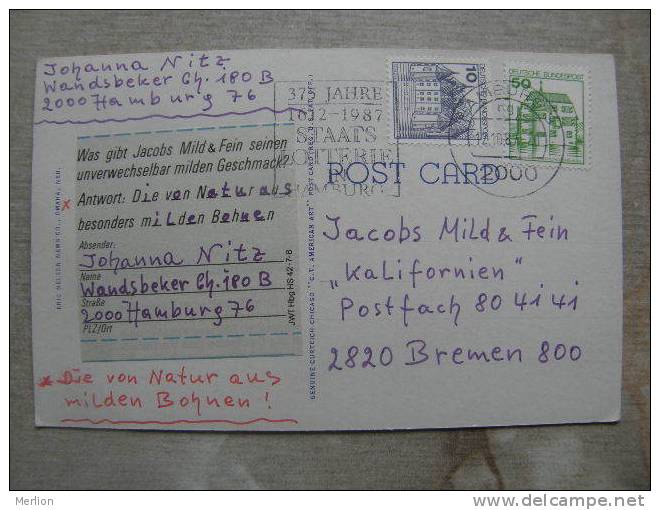 Johanna Nitz
Wandsbeker Ch. 180 B
2000 Hamburg 76
375 JAHRE
1612-1987
STAATS
LOTTERIE
HAMBURG
10
DEUTSCHE BUNDESPOST
50
DEUTSCHE BUNDESPOST
2000
POST CARD
Was gibt Jacobs Mild & Fein seinen
unverwechselbar milden Geschmack?
x Antwort: Die von Natur aus
besonders milden Bohnen
Absender:
Johanna Nitz
Name
Wandsbeker Ch. 180 B
Straße
2000 Hamburg 76
PLZ/Ort
JWT Hbg HS 42-7-8
x Die von Natur aus
milden Bohnen!
GENUINE CURTEICH-CHICAGO "C.T. AMERICAN ART" POST CARD (REG. U.S. PAT. OFF.)
Jacobs Mild & Fein
„Kalifornien"
Postfach 80 41 41
2820 Bremen 800
Merlion
www.delcampe.net